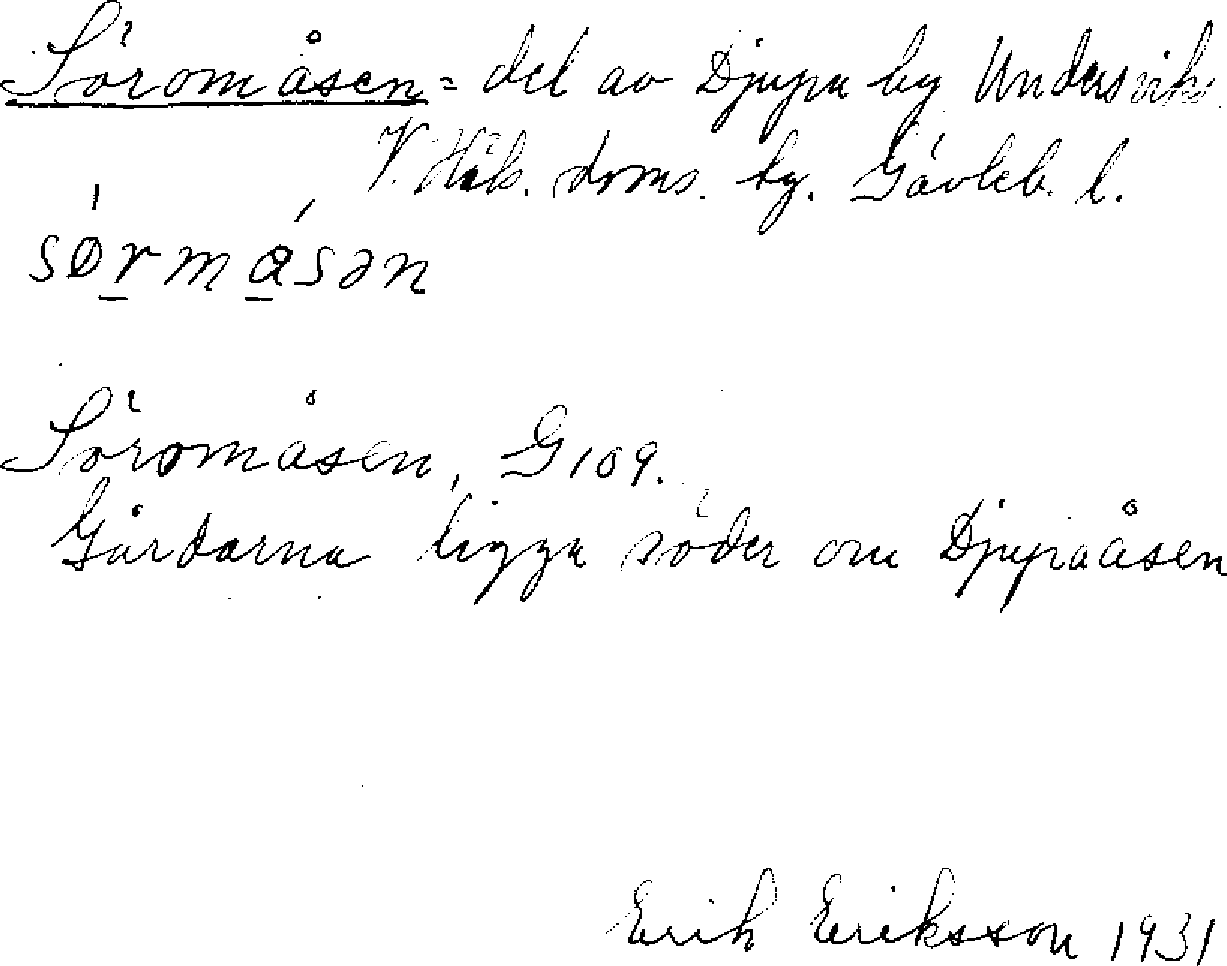 Söromåsen = del av Djupa by Undersvik.
V. Häls. doms. by. Gävleb. l.
sørmåsən
Söromåsen, G 109.
Gårdarna ligga söder om Djupaåsen
Erik Eriksson 1931